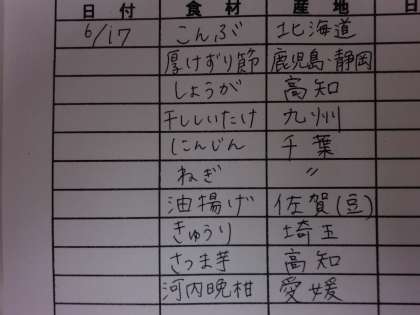 日付 食材 産地
6/17 こんぶ 北海道
厚けずり節 鹿児島・静岡
しょうが 高知
干ししいたけ 九州
にんじん 千葉
ねぎ 〃
油揚げ 佐賀(豆)
きゅうり 埼玉
さつま芋 高知
河内晩柑 愛媛